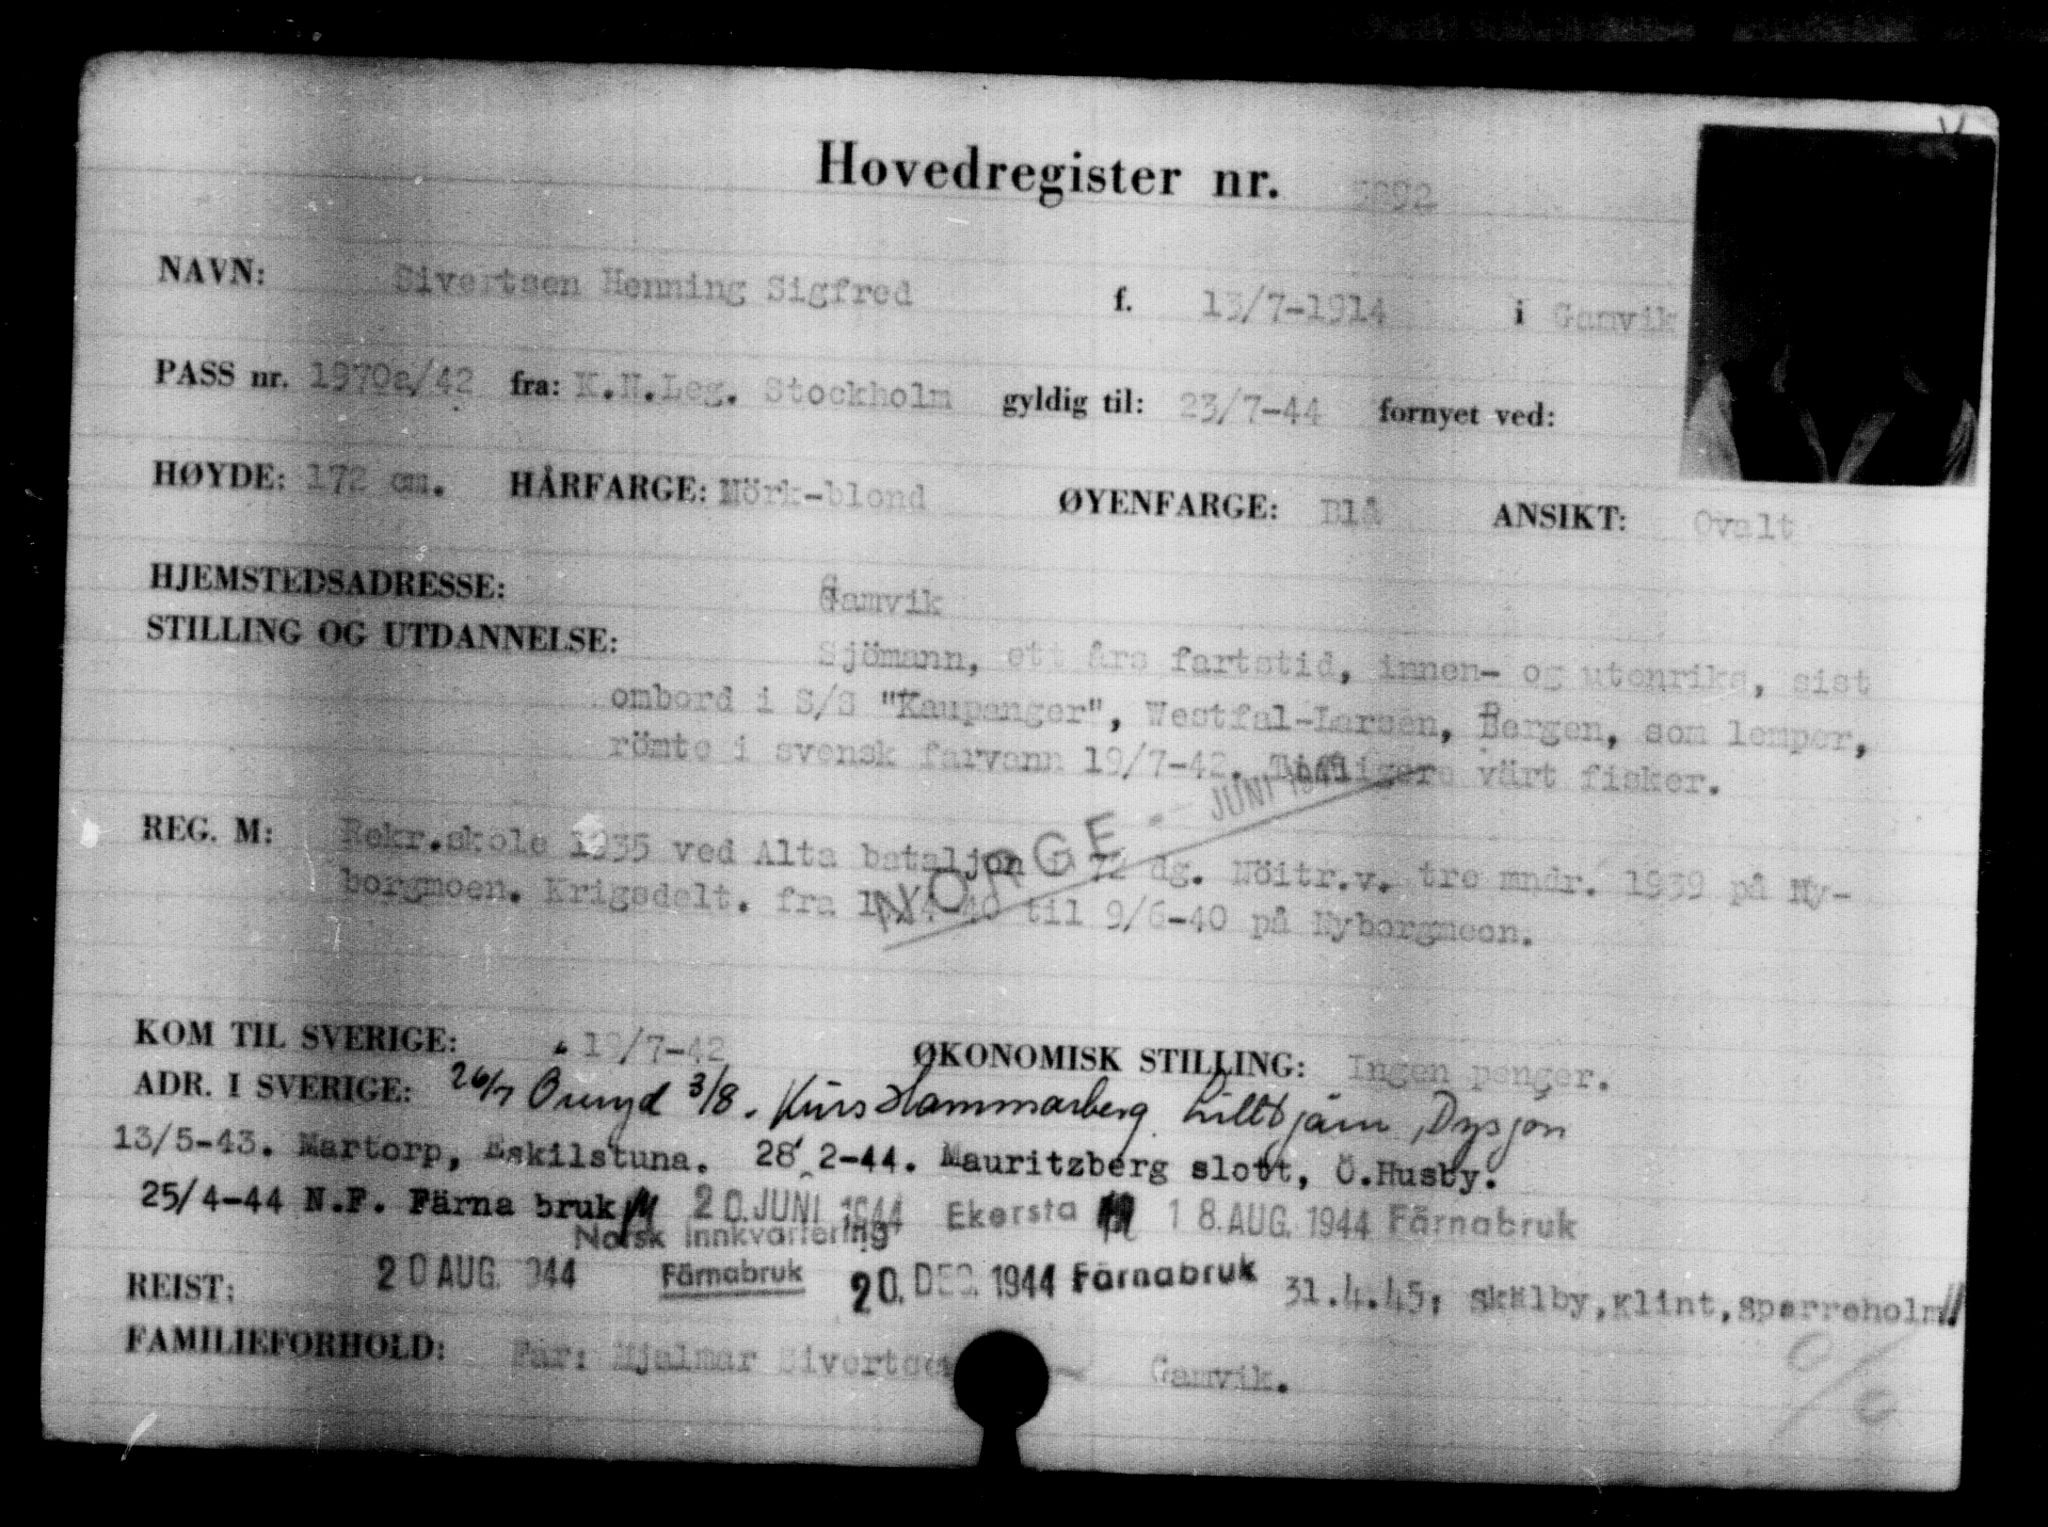 Hovedregister nr.
NAVN: Sivertsen Henning Sigfred f. 13/7-1914 i Gamvik
PASS nr. 1970a/42 fra: K.N.Leg. Stockholm gyldig til: 23/7-44 fornyet ved:
HØYDE: 172 cm. HÅRFARGE: Mörk-blond ØYENFARGE: Blå ANSIKT: Ovalt
HJEMSTEDSADRESSE: Gamvik
STILLING OG UTDANNELSE: Sjömann, ett års fartstid, innen- og utenriks, sist
ombord i S/S "Kaupanger", Westfal-Larsen, Bergen, som lemper,
römte i svensk farvann 19/7-42. Tidligere värt fisker.
NORGE - JUNI 1945
REG. M: Rekr.skole 1935 ved Alta bataljon i 72 dg. Nöitr.v. tre mndr. 1939 på Ny-
borgmoen. Krigsdelt. fra til 9/6-40 på Nyborgmoen.
KOM TIL SVERIGE: 19/7-42 ØKONOMISK STILLING: Ingen penger.
ADR. I SVERIGE: 26/7 Öreryd 3/8. Kurs Hammarberg Lilltjärn, Dysjön
13/5-43. Martorp, Eskilstuna. 28 2-44. Mauritzberg slott, Ö.Husby.
25/4-44 N.F. Färna bruk 20. JUNI 1944 Ekersta 18. AUG. 1944 Färnabruk
Norsk Innkvartering
REIST: 20 AUG. 944 Färnabruk 20. DEC. 1944 Färnabruk 31.4.45, Skälby, Klint, Sparreholm
FAMILIEFORHOLD: Far: Hjalmar Sivertsen Gamvik.